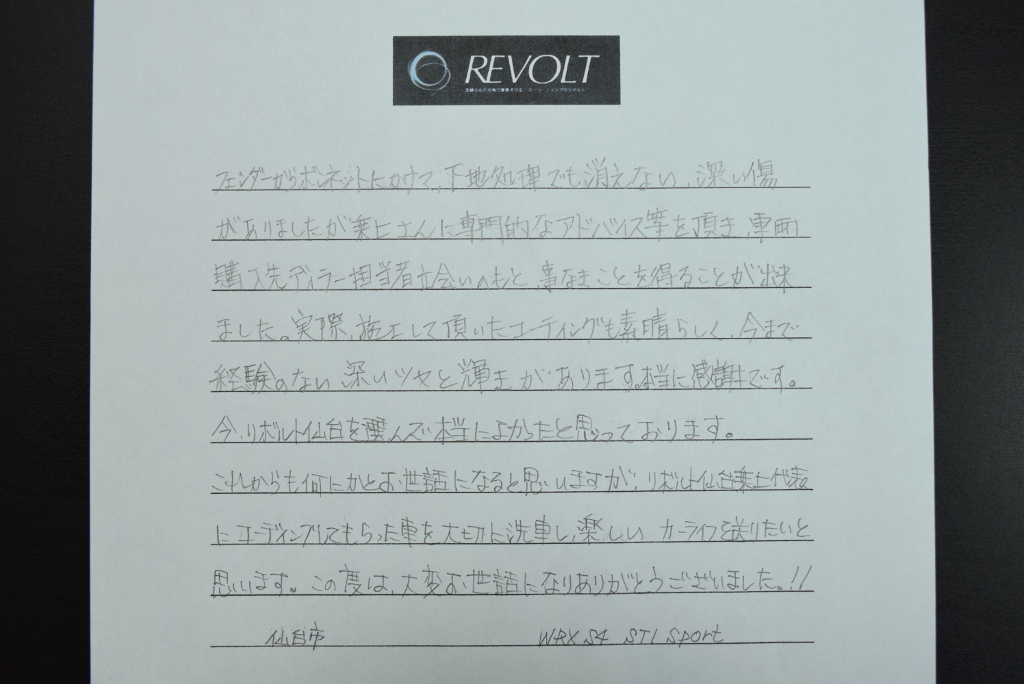 REVOLT
フェンダーからボンネットにかけて、下地処理でも消えない、深い傷
がありましたが乗上さんに専門的なアドバイス等を頂き、車両
購入先ディラー担当者立会いのもと、事なきことを得ることが出来
ました。実際、施工して頂いたコーティングも素晴らしく、今まで
経験のない深いツヤと輝きがあります。本当に感謝です。
今、リボルト仙台を選んで本当によかったと思っております。
これからも何にかとお世話になると思いますが、リボルト仙台乗上代表
にコーディングしてもらった車を大切に洗車し、楽しいカーライフを送りたいと
思います。この度は、大変お世話になりありがとうございました。!!
仙台市 WRX S4 STI Sport